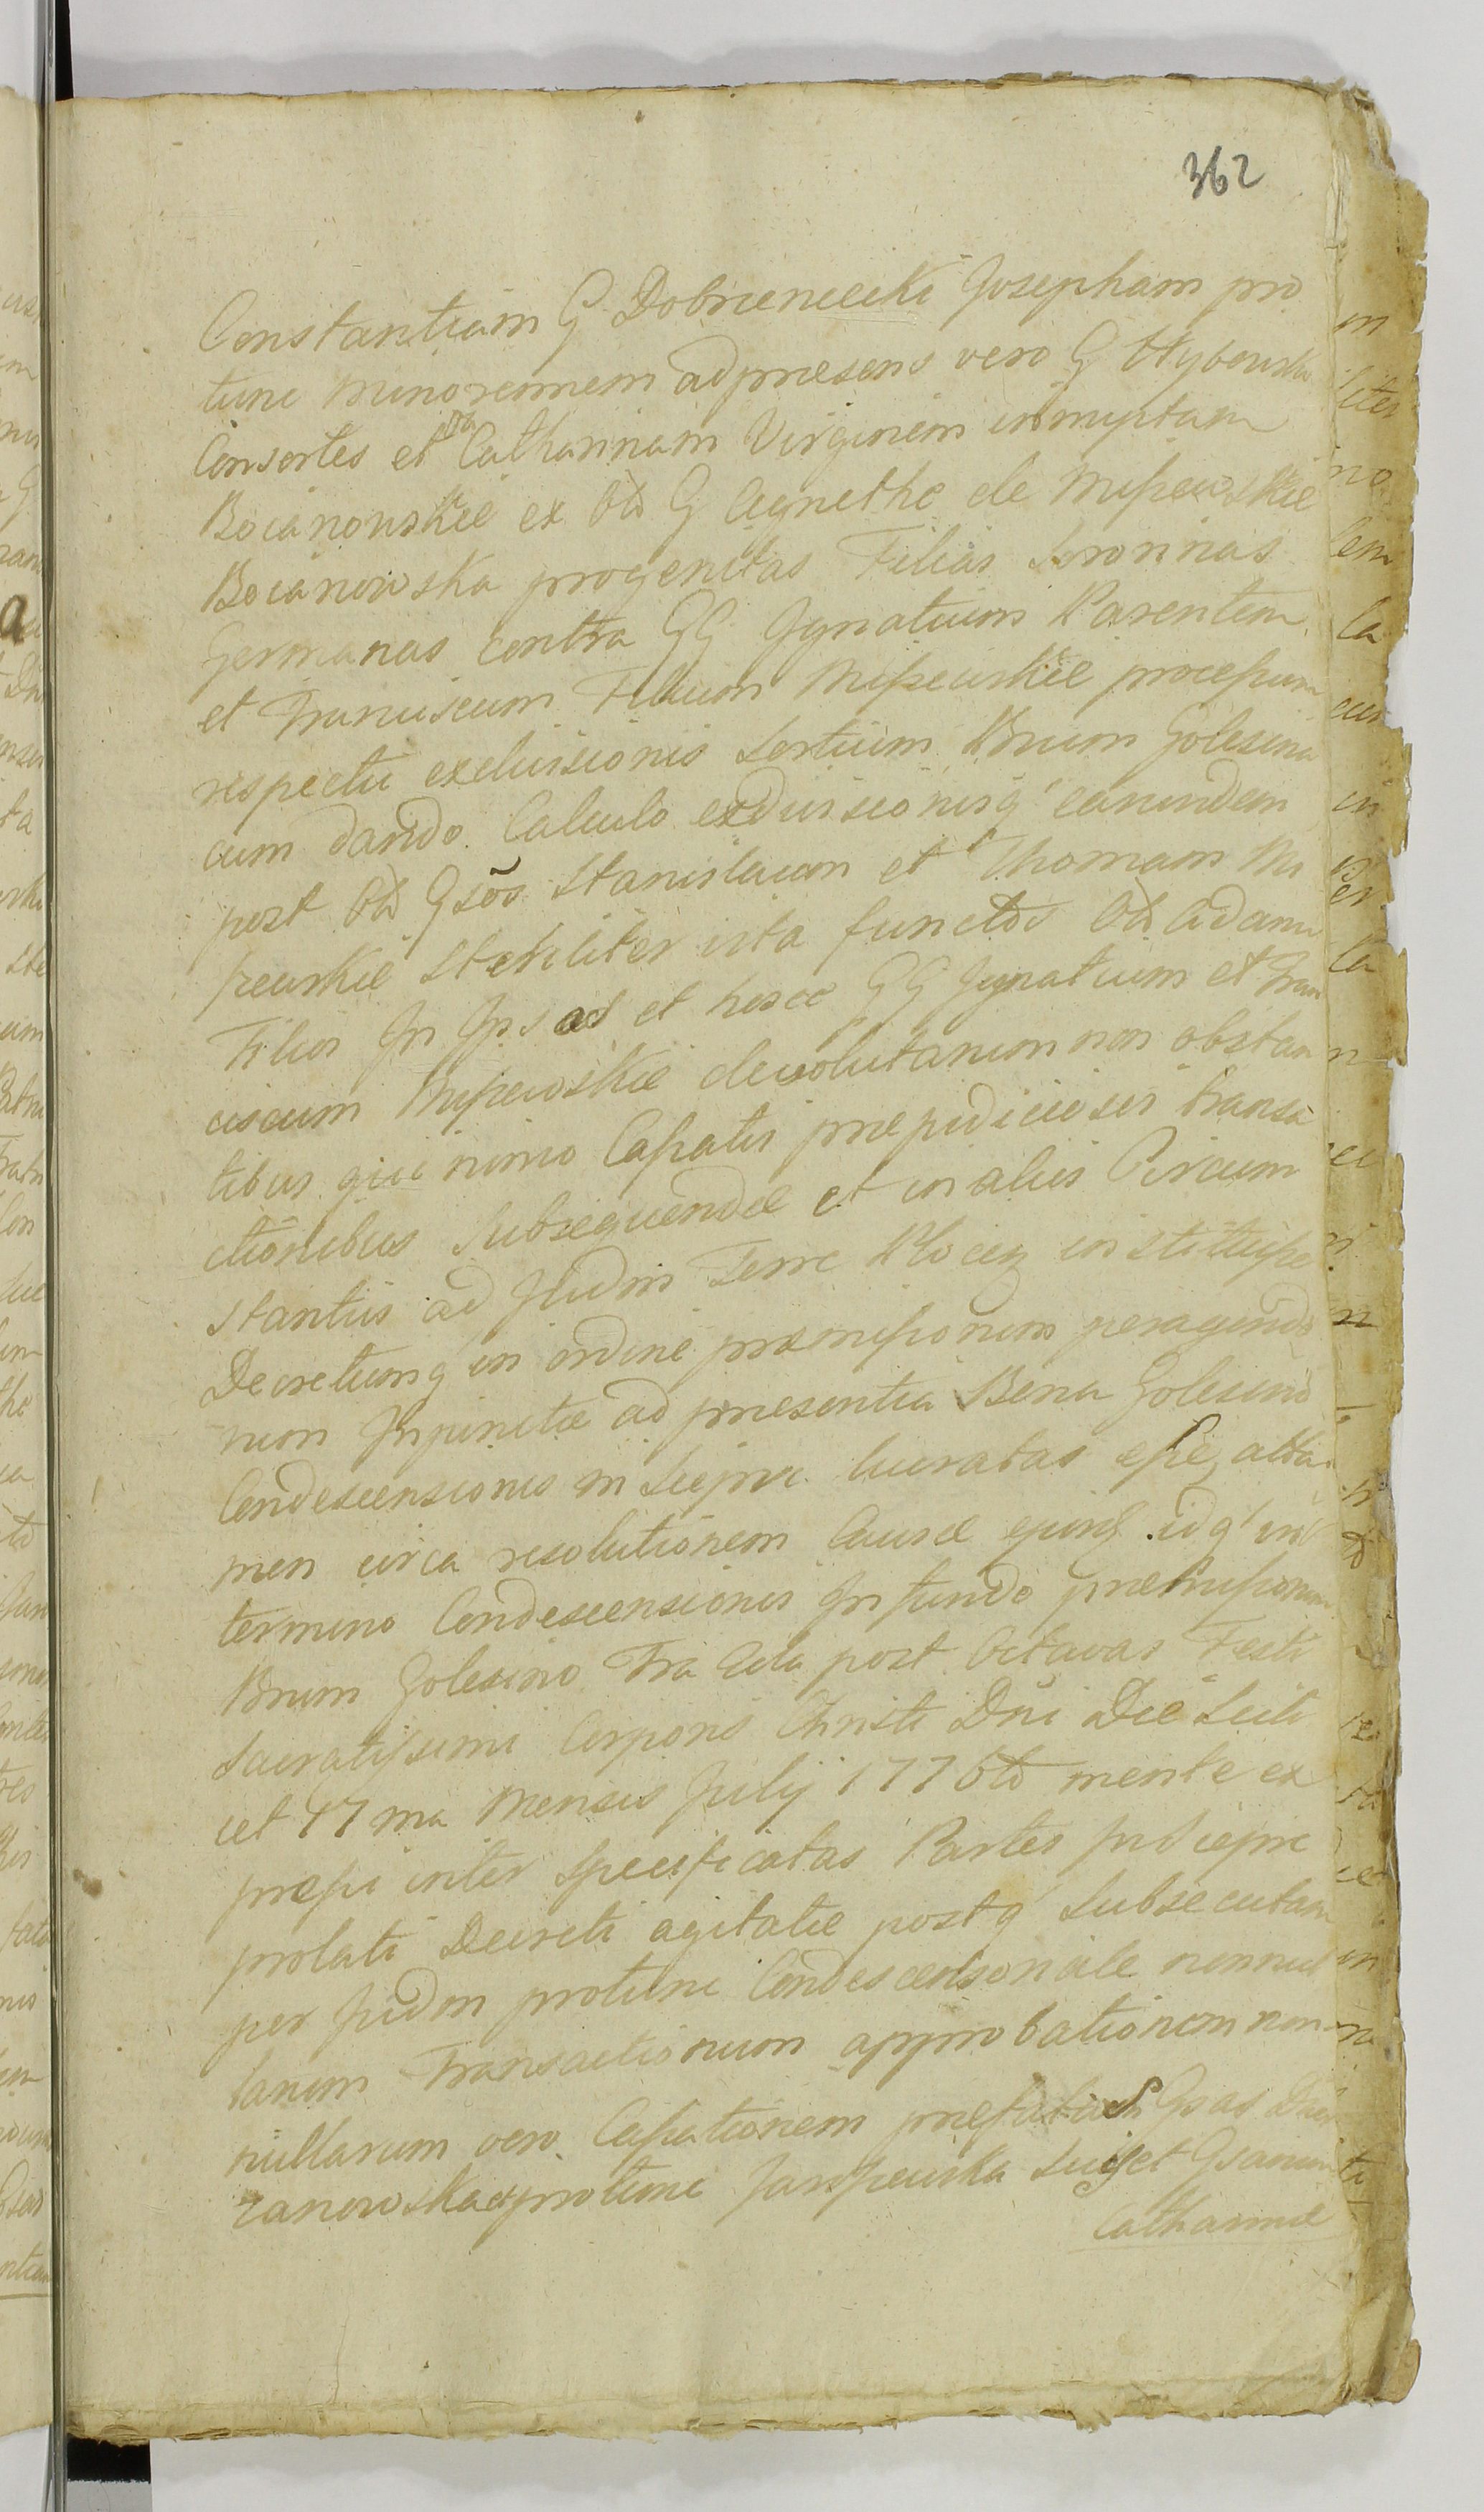 362
Constantiam G Dobrieneicki Josepham pro
tunc minorennem ad praesens vero G Wybouska
Consortes et Catharinam Virginem innuptam
Bocianouskie ex Olr G Agnethe de Mispeuskie
Bocianowska progenitas Filias Sororinas
Germanas contra GG Ignatium Parentem
et Franciscum Filium Mispeuskie processum
respectu exdivisionis Sortium Bnum Golesino
cum dando Calculo exdivisionisq' earundem
post Olr Gsõs Stanislaum et Thomam Mi
speuskie Steriliter vita functos Olr Adami
Filios In Ipsos et hosce GG Ignatium et Fran
ciscum Mispeuskie devolutarum non obstan
tibus qui nimo Cassatis praejudiciosis transa
ctionibus Subsequendae et in aliis Circum
stantiis ad Judm Terre Plocen instituisse
Decretumq' in ordine praemissorum peragendo
rum Inpunctae ad praesentia Bona Golesino
Condescensionis in Seipso lucratas esse atta
men circa resolutionem Causae ejusq idq' in
termino Condescensionis In fundo praemissorum
Bnum Golesino Fra 4ta post Octavas Festi
Sacratissimi Corporis Christi Dni Die Scili
cet 17 ma Mensis Julij 1776to mente ex
pressi inter Specificatas Partes
prolati Decreti agitatae postq' Subsecutam
per Judm protunc Condescensoriale nonnul
larum Transactionum approbationem non
nullarum vero Cassationem praefatas Gsas
zanowska protunc et Gsarum
Catharinae